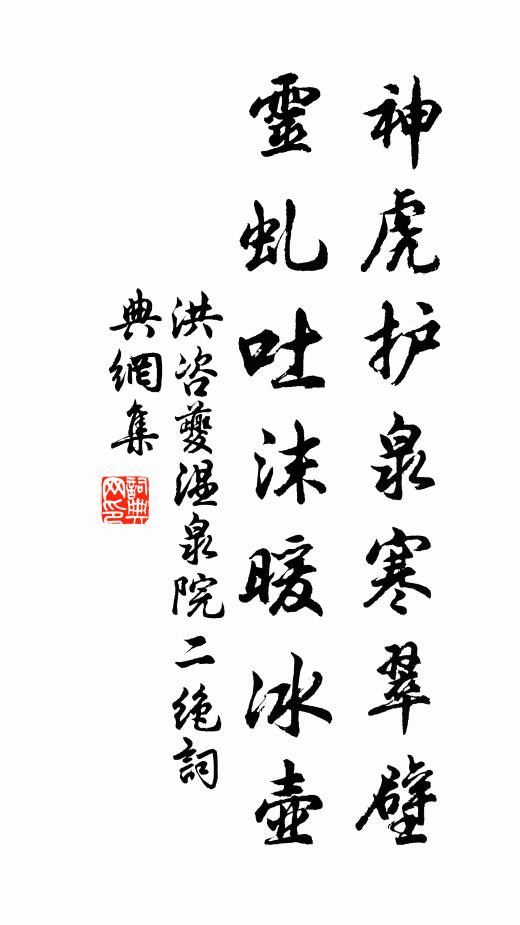 神虎护泉寒翠壁
靈虬吐沫暖冰壺
洪咨夔温泉院二绝詞
典網集
詞典网印